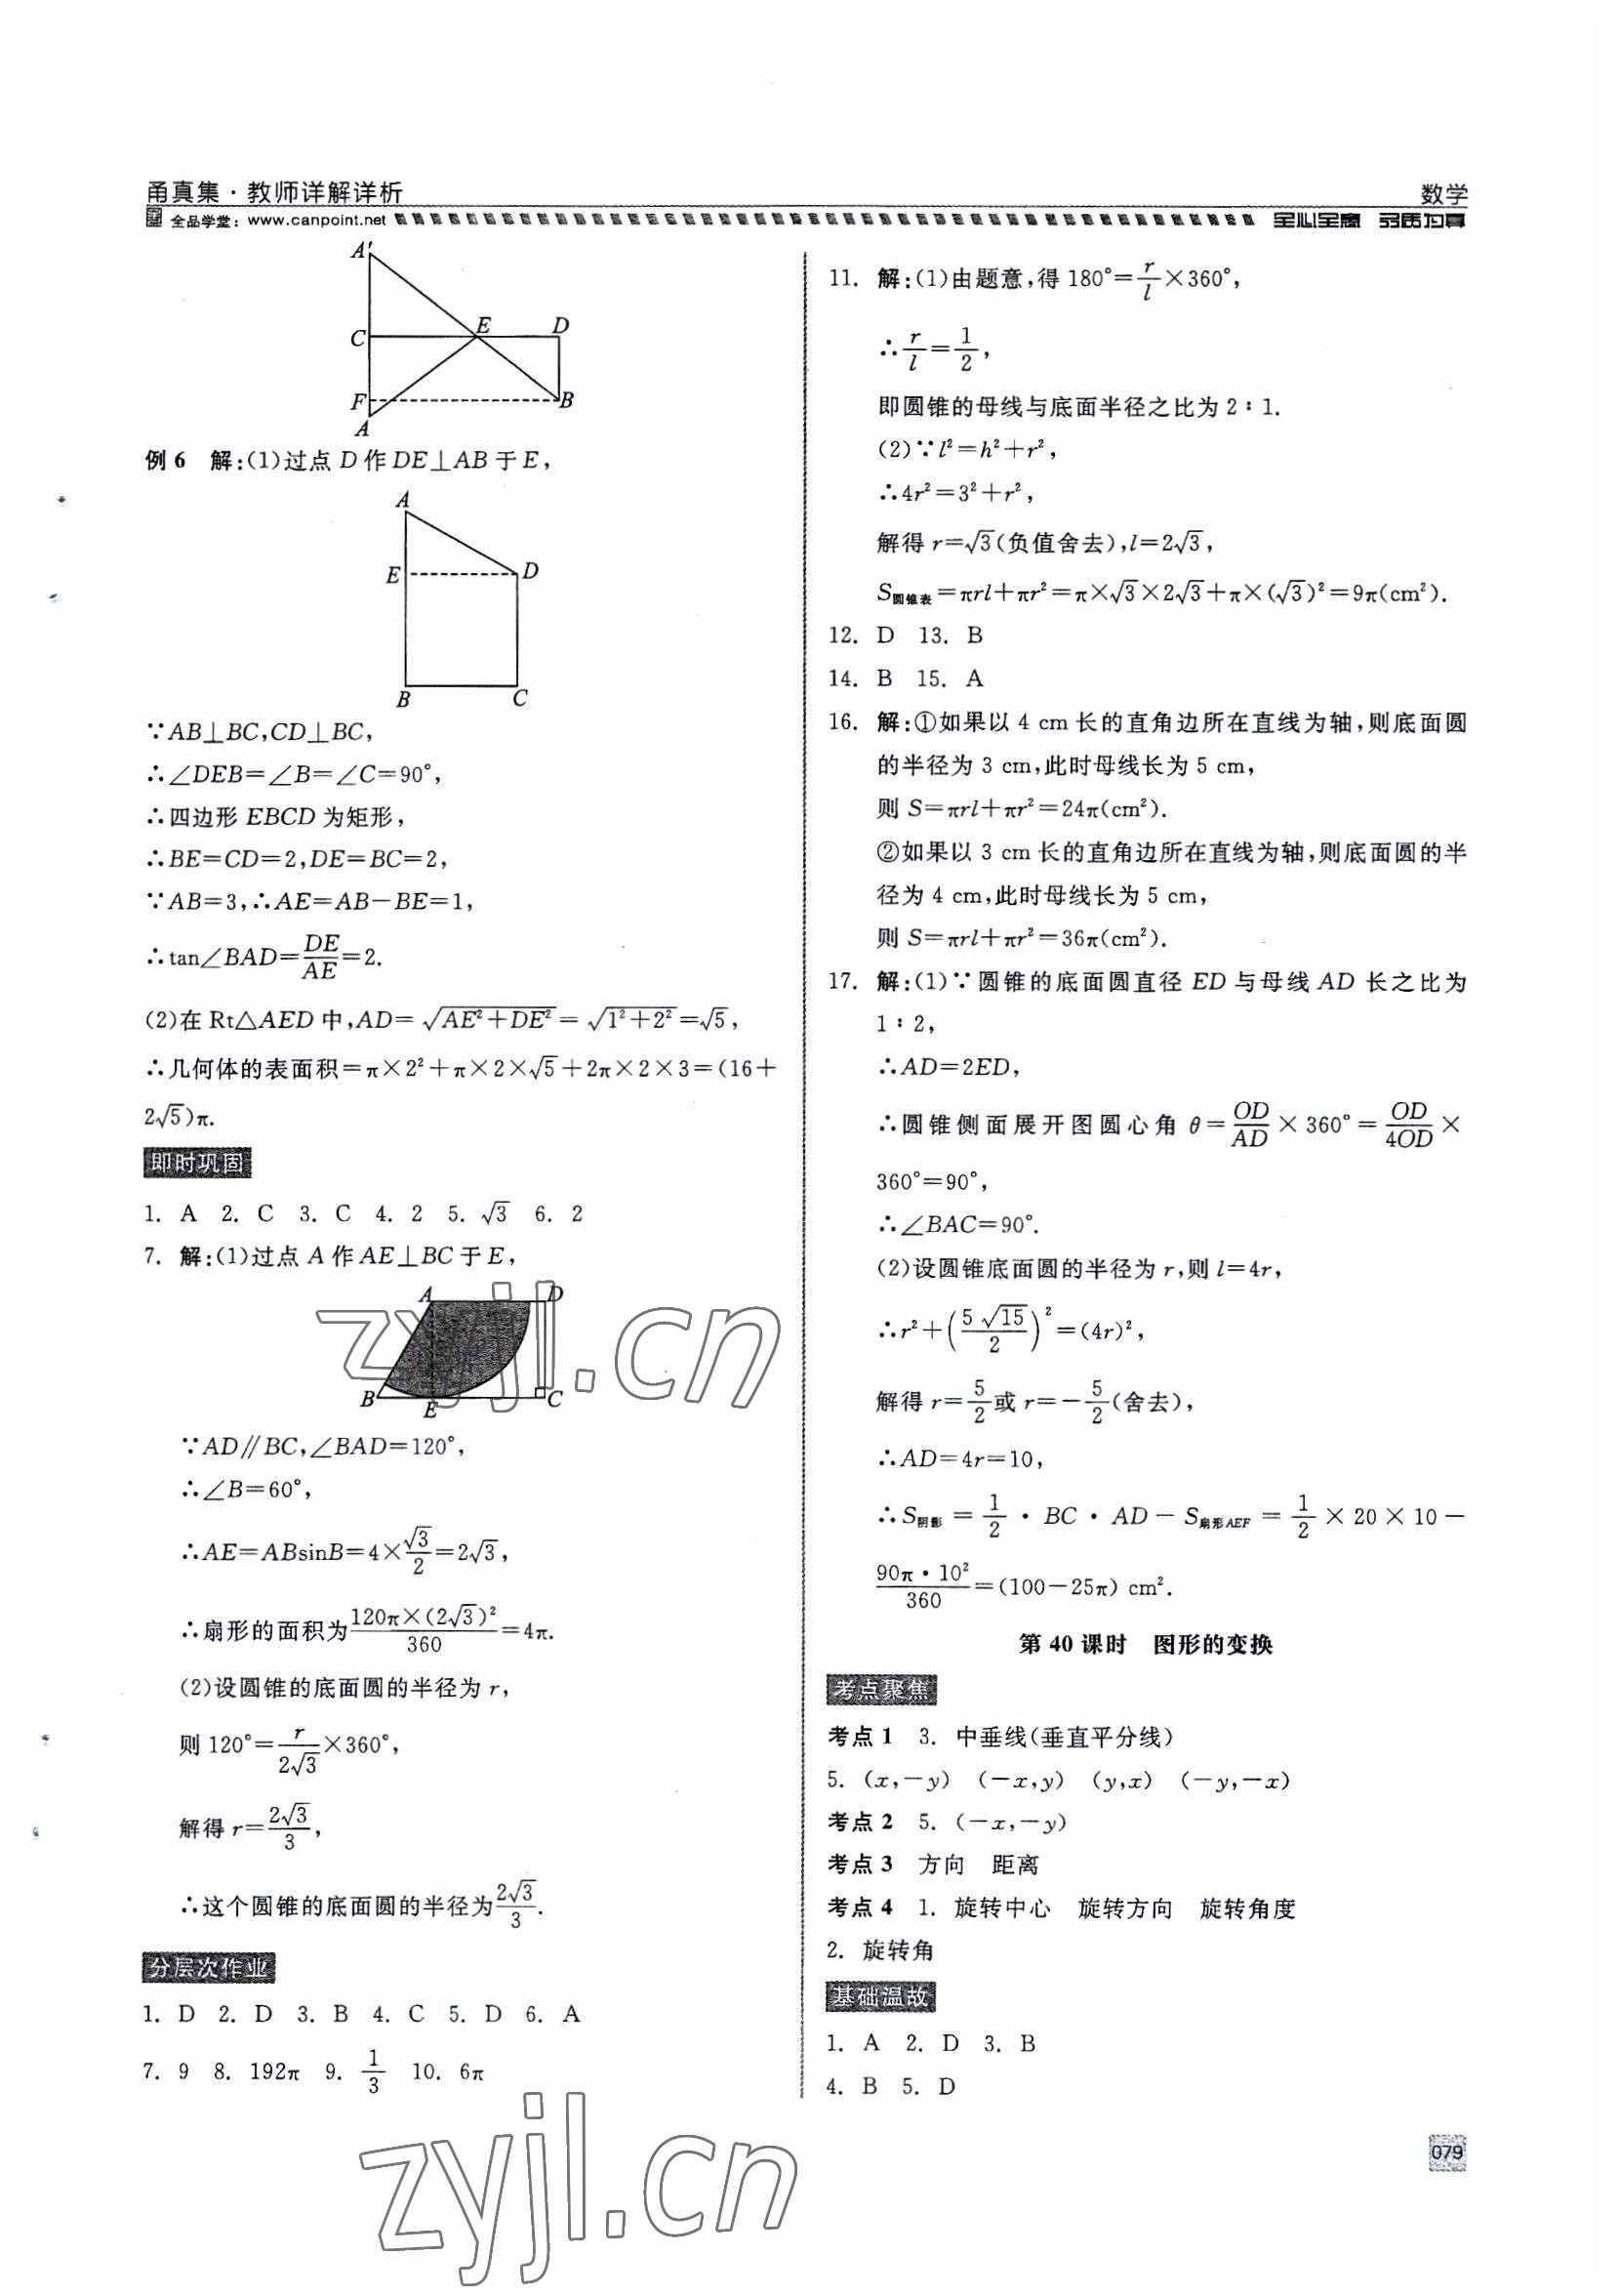 甬真集·教师详解详析
数学
全品学堂：www.canpoint.net
全心全意 另质为真
A′
C
E
D
F
B
A
例 6 解:(1)过点 D 作 DE⊥AB 于 E,
A
E
D
B
C
∵AB⊥BC,CD⊥BC,
∴∠DEB=∠B=∠C=90°,
∴四边形 EBCD 为矩形,
∴BE=CD=2,DE=BC=2,
∵AB=3,∴AE=AB−BE=1,
∴tan∠BAD=DE/AE=2.
(2)在 Rt△AED 中,AD=√(AE²+DE²)=√(1²+2²)=√5,
∴几何体的表面积=π×2²+π×2×√5+2π×2×3=(16+
2√5)π.
即时巩固
1. A 2. C 3. C 4. 2 5. √3 6. 2
7. 解:(1)过点 A 作 AE⊥BC 于 E,
A
D
B
E
C
∵AD∥BC,∠BAD=120°,
∴∠B=60°,
∴AE=ABsinB=4×√3/2=2√3,
∴扇形的面积为120π×(2√3)²/360=4π.
(2)设圆锥的底面圆的半径为 r,
则 120°=r/2√3×360°,
解得 r=2√3/3,
∴这个圆锥的底面圆的半径为2√3/3.
分层次作业
1. D 2. D 3. B 4. C 5. D 6. A
7. 9 8. 192π 9. 1/3 10. 6π
11. 解:(1)由题意,得 180°=r/l×360°,
∴r/l=1/2,
即圆锥的母线与底面半径之比为 2∶1.
(2)∵l²=h²+r²,
∴4r²=3²+r²,
解得 r=√3(负值舍去),l=2√3,
S圆锥表=πrl+πr²=π×√3×2√3+π×(√3)²=9π(cm²).
12. D 13. B
14. B 15. A
16. 解:①如果以 4 cm 长的直角边所在直线为轴,则底面圆
的半径为 3 cm,此时母线长为 5 cm,
则 S=πrl+πr²=24π(cm²).
②如果以 3 cm 长的直角边所在直线为轴,则底面圆的半
径为 4 cm,此时母线长为 5 cm,
则 S=πrl+πr²=36π(cm²).
17. 解:(1)∵圆锥的底面圆直径 ED 与母线 AD 长之比为
1∶2,
∴AD=2ED,
∴圆锥侧面展开图圆心角 θ=OD/AD×360°=OD/4OD×
360°=90°,
∴∠BAC=90°.
(2)设圆锥底面圆的半径为 r,则 l=4r,
∴r²+(5√15/2)²=(4r)²,
解得 r=5/2或 r=−5/2(舍去),
∴AD=4r=10,
∴S阴影=1/2·BC·AD−S扇形AEF=1/2×20×10−
90π·10²/360=(100−25π) cm².
第 40 课时 图形的变换
考点聚焦
考点 1 3. 中垂线(垂直平分线)
5. (x,−y) (−x,y) (y,x) (−y,−x)
考点 2 5. (−x,−y)
考点 3 方向 距离
考点 4 1. 旋转中心 旋转方向 旋转角度
2. 旋转角
基础温故
1. A 2. D 3. B
4. B 5. D
079
zyjl.cn
zyjl.cn